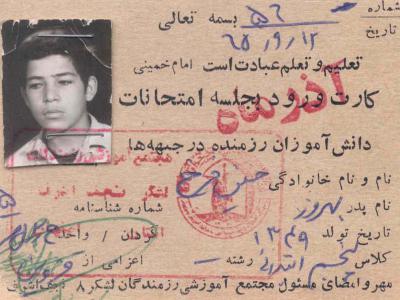 شماره ۵۶ بسمه تعالی
تاریخ ۶۵/۹/۱۲
تعلیم و تعلم عبادت است امام خمینی
کارت ورود بجلسه امتحانات
آذرماه
دانش‌آموزان رزمنده در جبهه‌ها
نام و نام خانوادگی
نام پدر بهروز شماره شناسنامه
تاریخ تولد ۱۳۴۹ گردان / واحد
کلاس پنجم ابتدائی رشته اعزامی از
مهر و امضای مسئول مجتمع آموزشی رزمندگان لشکر ۸ نجف اشرف